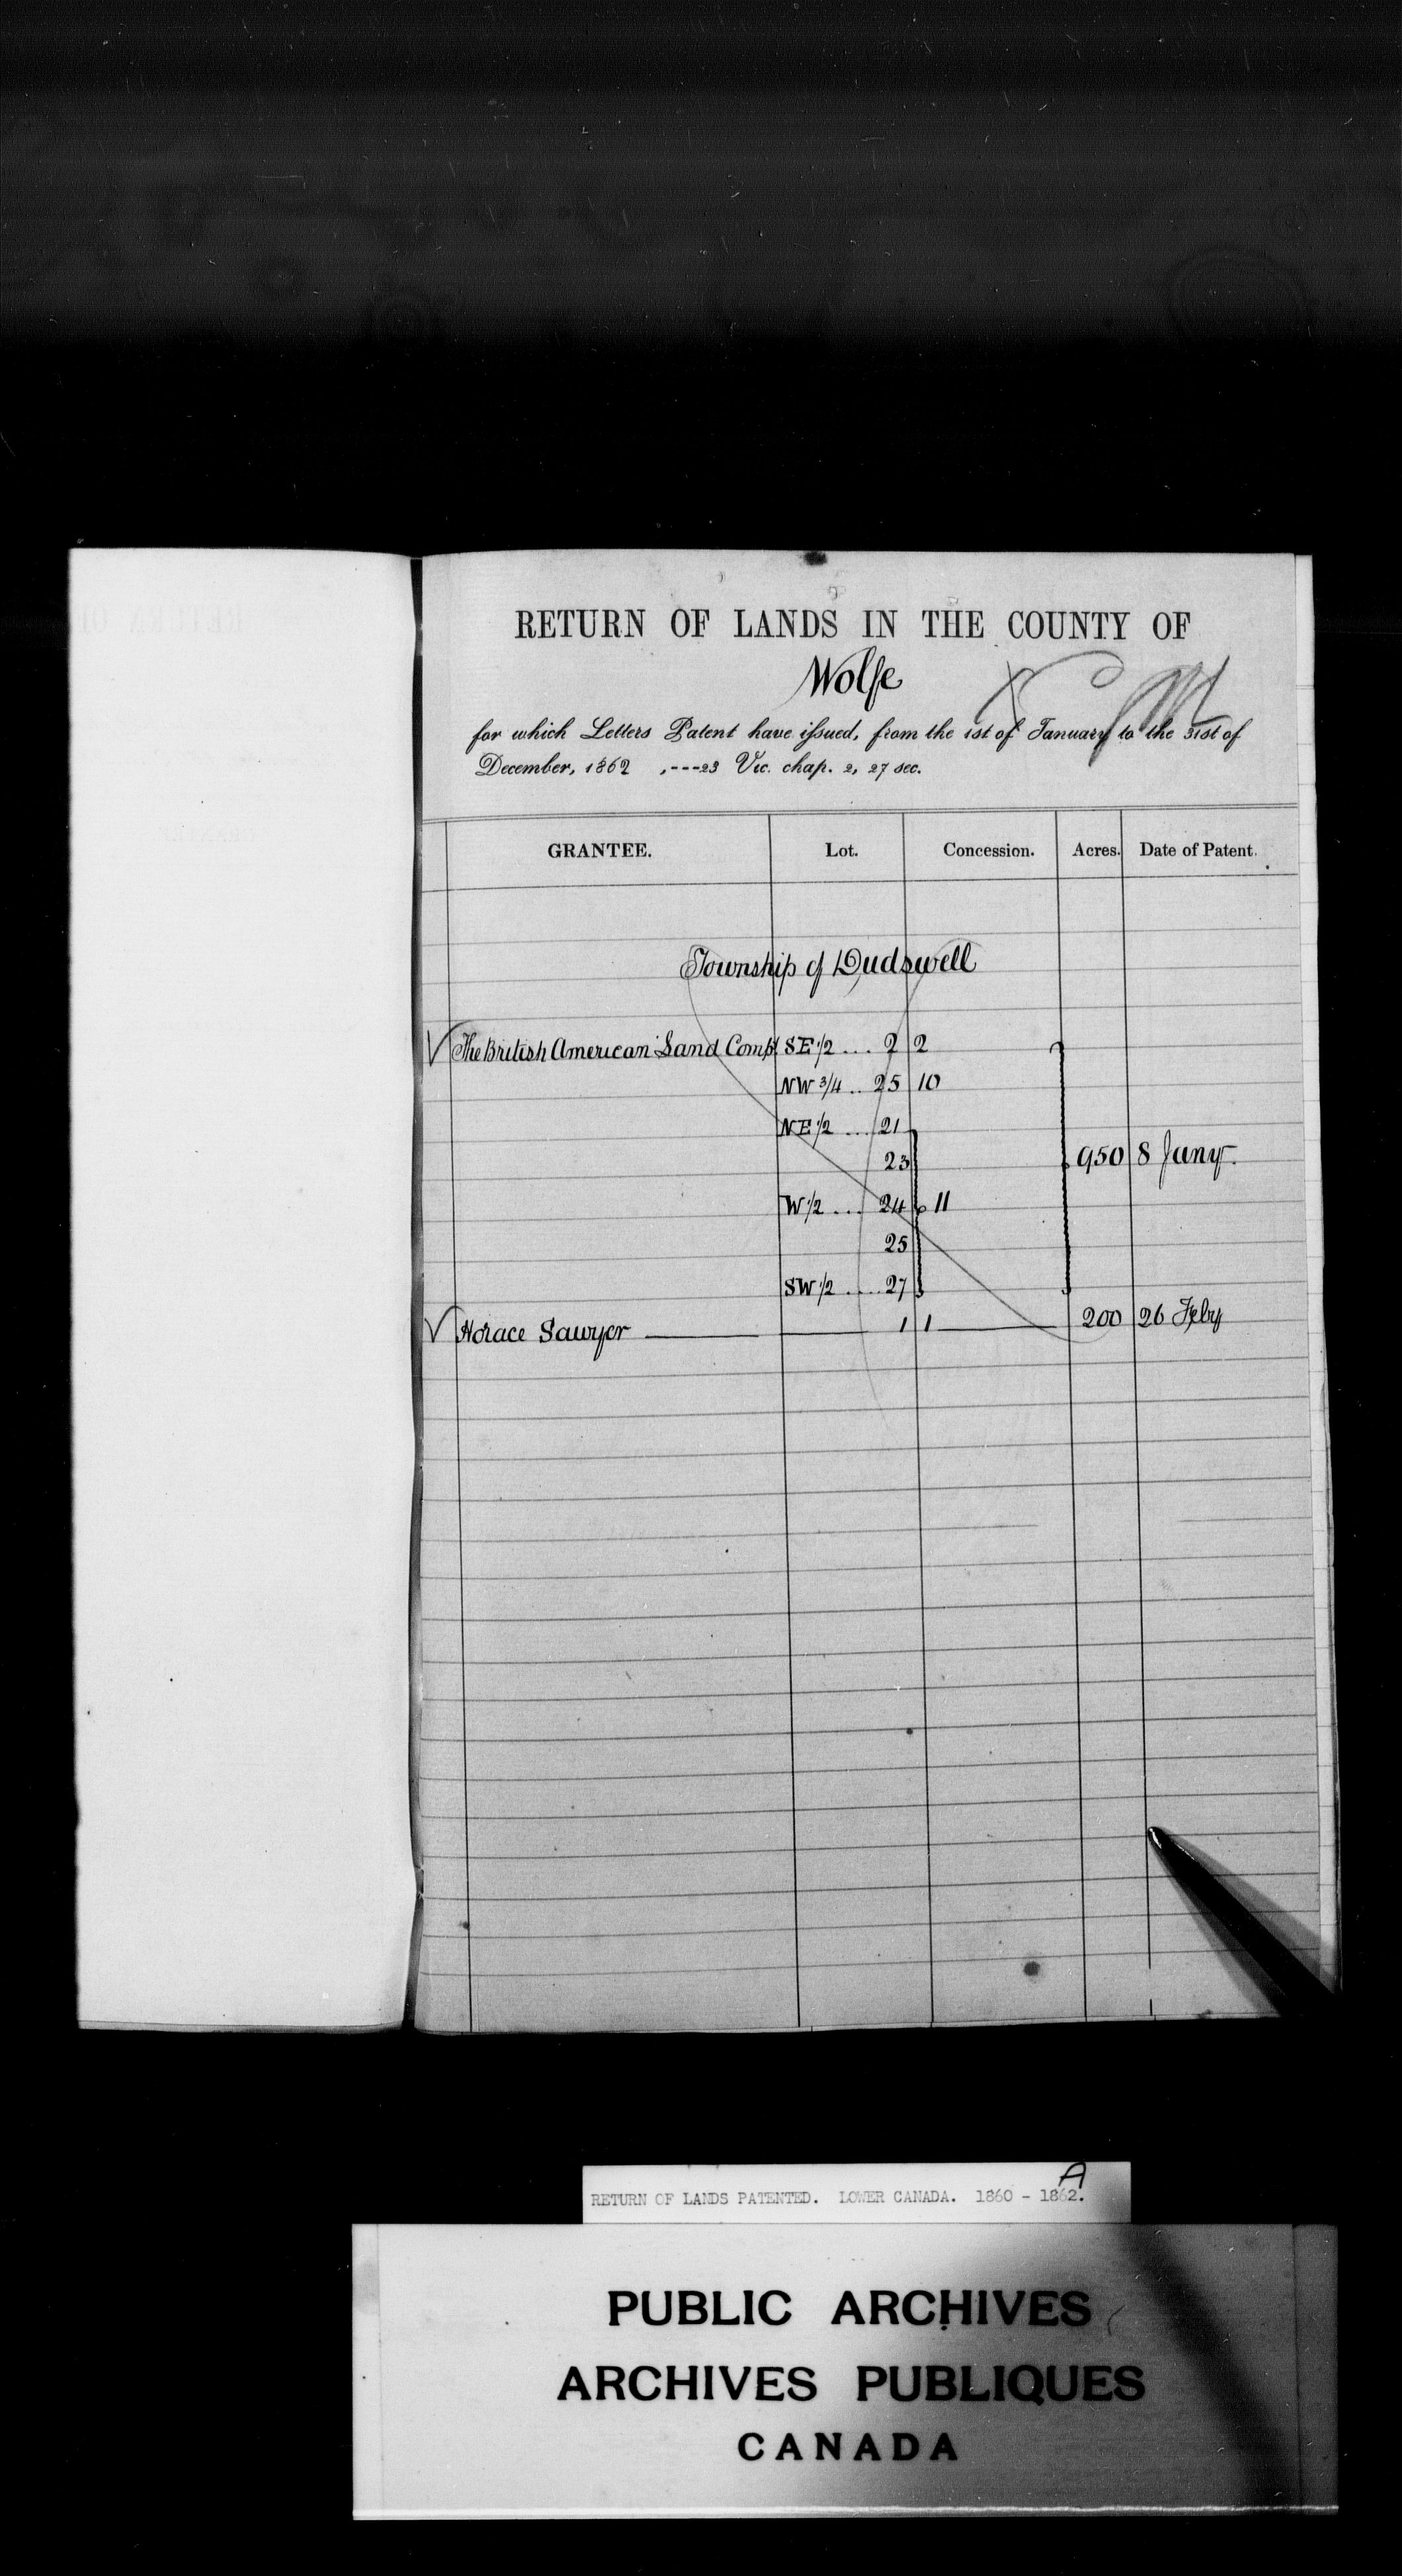 RETURN OF LANDS IN THE COUNTY OF
Wolfe
for which Letters Patent have issued, from the 1st of January to the 31st of
December, 1862 ,---23 Vic. chap. 2, 27 sec.
GRANTEE. Lot. Concession. Acres. Date of Patent.
Township of Dudswell
The British American Land Compy SE 1/2 .... 2 2
NW 3/4 .. 25 10
NE 1/2 .... 21
23
950 8 Jany.
W 1/2 .... 24 11
25
SW 1/2 .... 27
Horace Sawyer 1 1 200 26 Feby
A
RETURN OF LANDS PATENTED. LOWER CANADA. 1860 - 1862.
PUBLIC ARCHIVES
ARCHIVES PUBLIQUES
CANADA